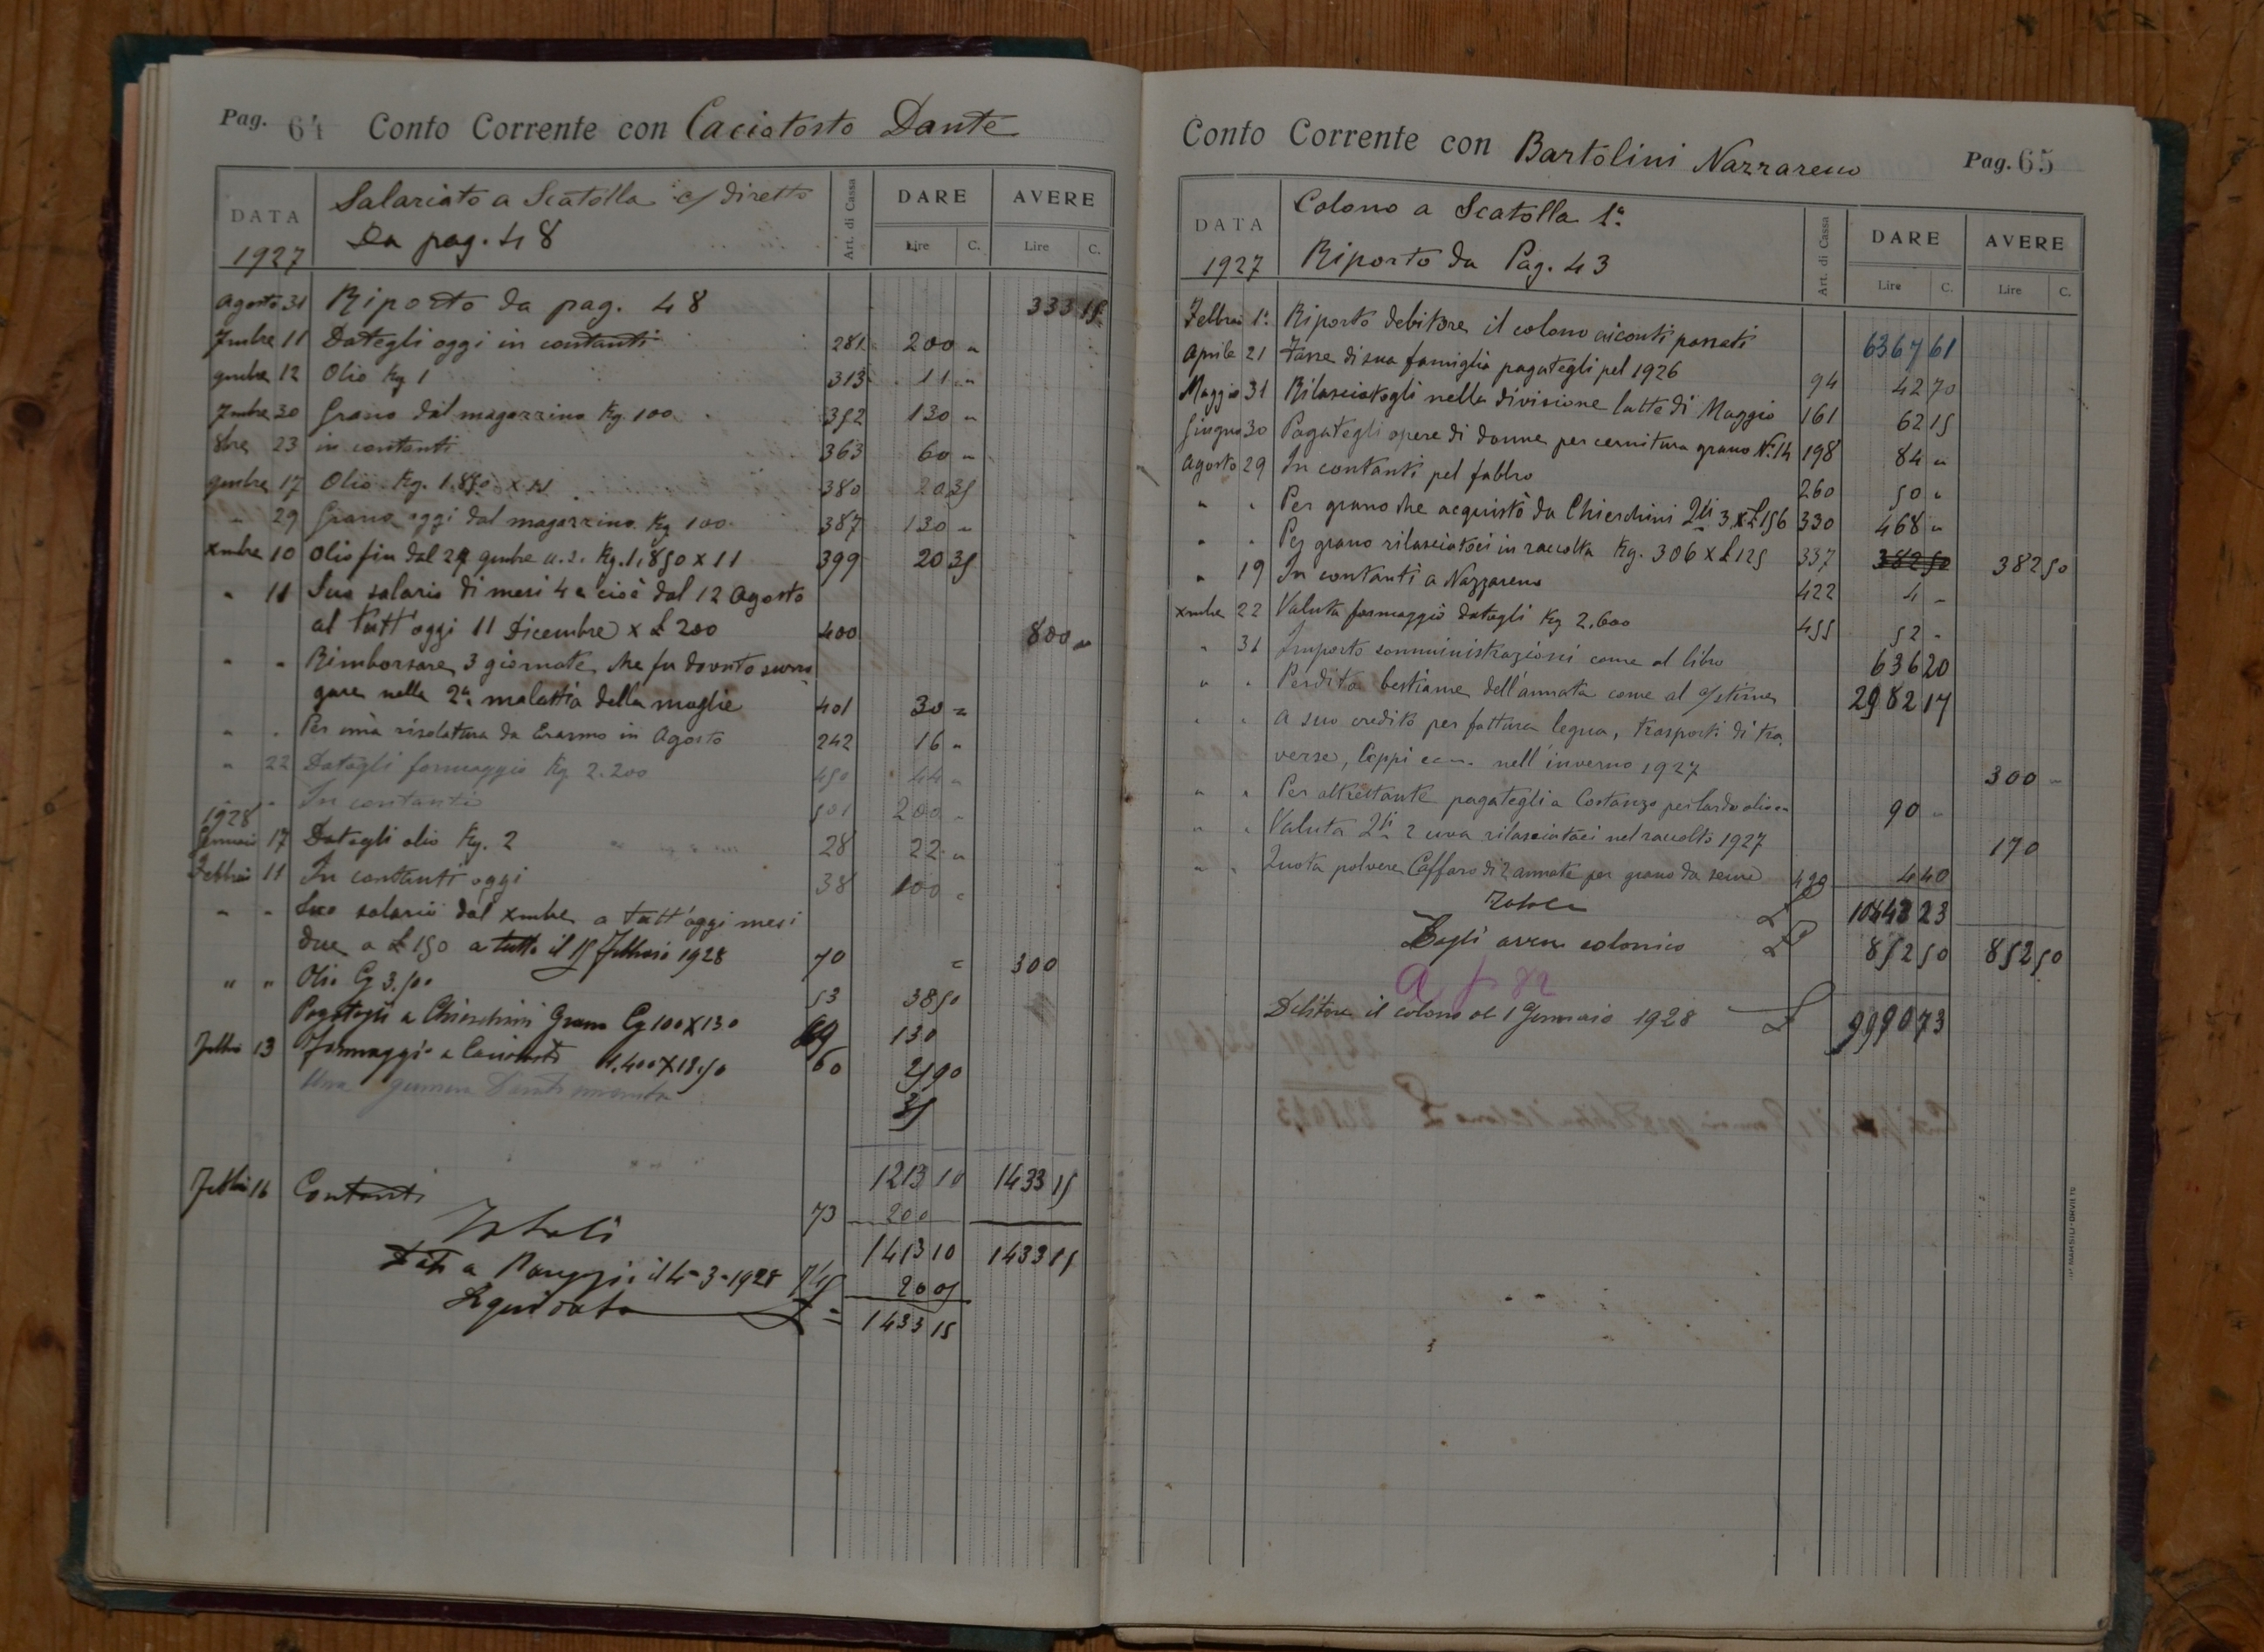 Pag. 64 Conto Corrente con Caciotosto Dante
DATA Salariato a Scatolla c/ diretto Art. di Cassa DARE AVERE
1927 Da pag. 48 Lire C. Lire C.
Agosto 31 Riporto da pag. 48 333 15
7mbre 11 Dategli oggi in contanti 281 200 "
gmbre 12 Olio Kg 1 313 11 "
7mbre 30 Grano dal magazzino Kg. 100 352 130 "
8bre 23 in contanti 363 60 "
gmbre 17 Olio Kg. 1.850 x 11 380 20 35
" 29 Grano oggi dal magazzino Kg 100 387 130 "
Xmbre 10 Olio fin dal 24 gmbre u.s. Kg. 1,850 x 11 399 20 35
" 11 Suo salario di mesi 4 e cioè dal 12 Agosto
al tutt'oggi 11 Dicembre x £ 200 400 800 "
" " Rimborsare 3 giornate che fu dovuto surro
gare nella 2a malattia della moglie 401 30 =
" " Per una risolatura da Erasmo in Agosto 242 16 "
" 22 Datogli formaggio Kg 2.200 450 44 "
" In contanti 501 200 "
1928
Gennaio 17 Datogli olio Kg. 2 28 22 "
Febbraio 11 In contanti oggi 38 100 "
" " Suo salario dal Xmbre a tutt'oggi mesi
due a £ 150 a tutto il 15 Febbraio 1928 70 " 300
" " Olio Cg 3.500 53 38 50
Pagatogli a Chierchini Grano Cg 100 X 130 69 130
Febbr 13 Formaggio a 1.400 X 18.50 60 25 90
Una 35
1213 10 1433 15
Febbr 16 Contanti 73 200
Totali 1413 10 1433 15
Dati a il 4-3-1928 745 20 05
Liquidato £ = 1433 15
Conto Corrente con Bartolini Nazzareno Pag. 65
DATA Colono a Scatolla 1a Art. di Cassa DARE AVERE
1927 Riporto da Pag. 43 Lire C. Lire C.
Febbraio 1° Riporto debitore il colono ai conti passati 6367 61
Aprile 21 Tasse di sua famiglia pagategli pel 1926 94 42 70
Maggio 31 Rilasciatogli nella divisione latte di Maggio 161 62 15
Giugno 30 Pagategli opere di donne per cernitura grano N. 14 198 84 "
Agosto 29 In contanti pel fabbro 260 50 "
" " Per grano che acquistò da Chierchini Qli 3 x £ 156 330 468 "
" " Per grano rilasciatoci in raccolta Kg. 306 x £ 125 337 382 50 382 50
" 19 In contanti a Nazzareno 422 4 -
Xmbre 22 Valuta formaggio datogli Kg 2.600 455 52 -
" 31 Importo somministrazioni come al libro 636 20
" " Perdita bestiame dell'annata come al c/ stime 2982 17
" " A suo credito per fattura legna, trasporti di tra
verse, Coppi ecc. nell'inverno 1927 300 -
" " Per altrettante pagategli a Costanzo per lardo 90 "
" " Valuta Qli 2 uva rilasciataci nel raccolto 1927 170
" " Quota polvere Caffaro di 2 annate per grano da seme 4 40
Totali £ 10843 23
Togli avere colonico £ 852 50 852 50
a p 82
Debitore il colono al 1 Gennaio 1928 £ 9990 73